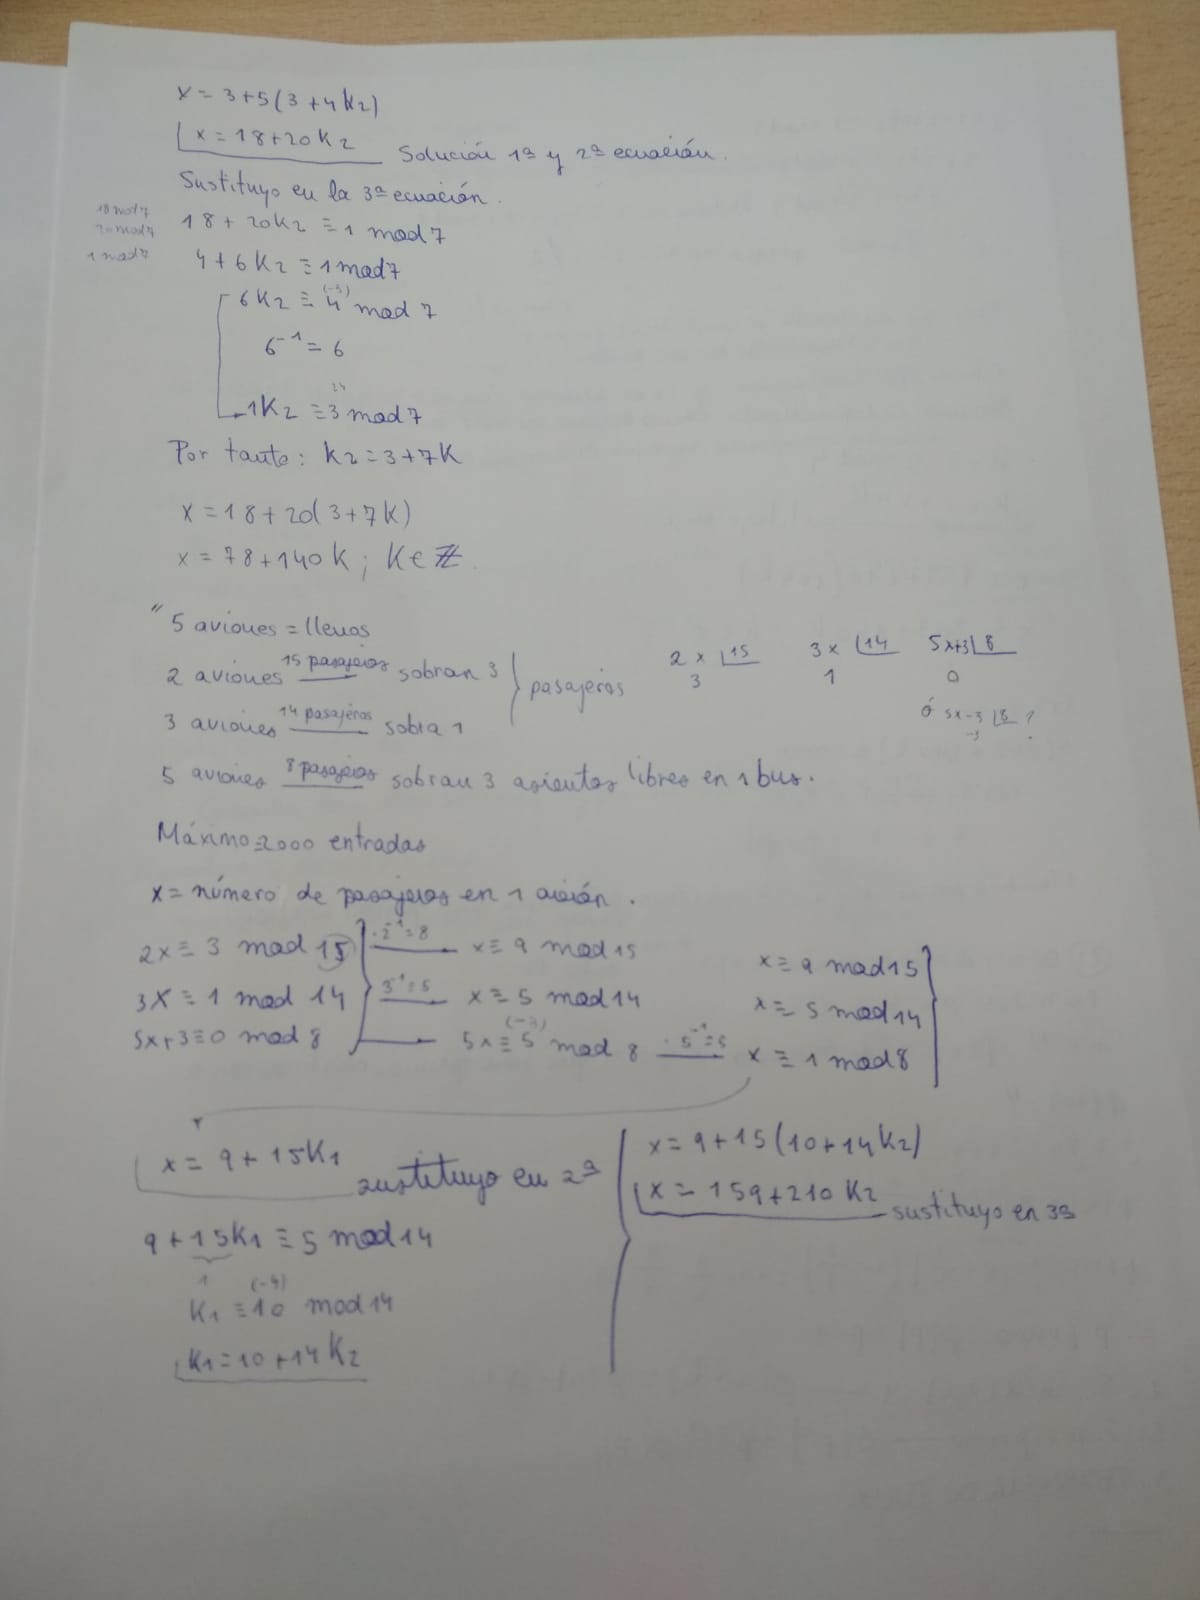 x = 3+5(3+4K2)
x = 18+20K2 Solución 1ª y 2ª ecuación.
Sustituyo en la 3ª ecuación.
18 mod 7
20 mod 7
1 mod 7
18 + 20K2 ≡ 1 mod 7
4 + 6K2 ≡ 1 mod 7
(-3)
6K2 ≡ 4 mod 7
6⁻¹ = 6
24
1K2 ≡ 3 mod 7
Por tanto: K2 = 3+7K
x = 18+20(3+7K)
x = 78+140K ; K∈ℤ.
" 5 aviones = llenos
2 aviones 15 pasajeros sobran 3
3 aviones 14 pasajeros sobra 1
} pasajeros
2x |15
3
3x |14
1
5x+3 |8
0
ó 5x-3 |8 ?
-3
5 aviones 8 pasajeros sobran 3 asientos libres en 1 bus.
Máximo=2000 entradas
x = número de pasajeros en 1 avión.
2x ≡ 3 mod 15 ·2⁻¹=8 x ≡ 9 mod 15
3x ≡ 1 mod 14 3⁻¹=5 x ≡ 5 mod 14
(-3)
5x+3≡0 mod 8 5x ≡ 5 mod 8 ·5⁻¹=5 x ≡ 1 mod 8
x ≡ 9 mod 15
x ≡ 5 mod 14
x = 9 + 15K1 sustituyo en 2ª
9 + 15K1 ≡ 5 mod 14
1 (-4)
K1 ≡ 10 mod 14
K1 = 10 + 14K2
x = 9 + 15(10+14K2)
x = 159+210K2 sustituyo en 3ª